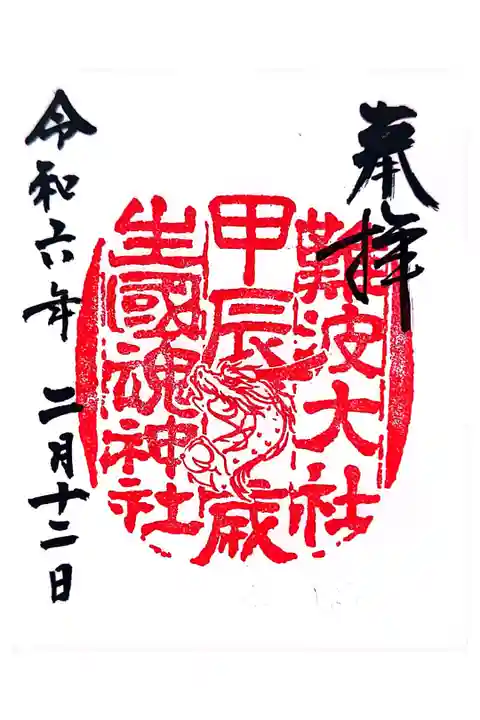 奉拝
難波大社
甲辰歳
生國魂神社
令和六年 二月十二日